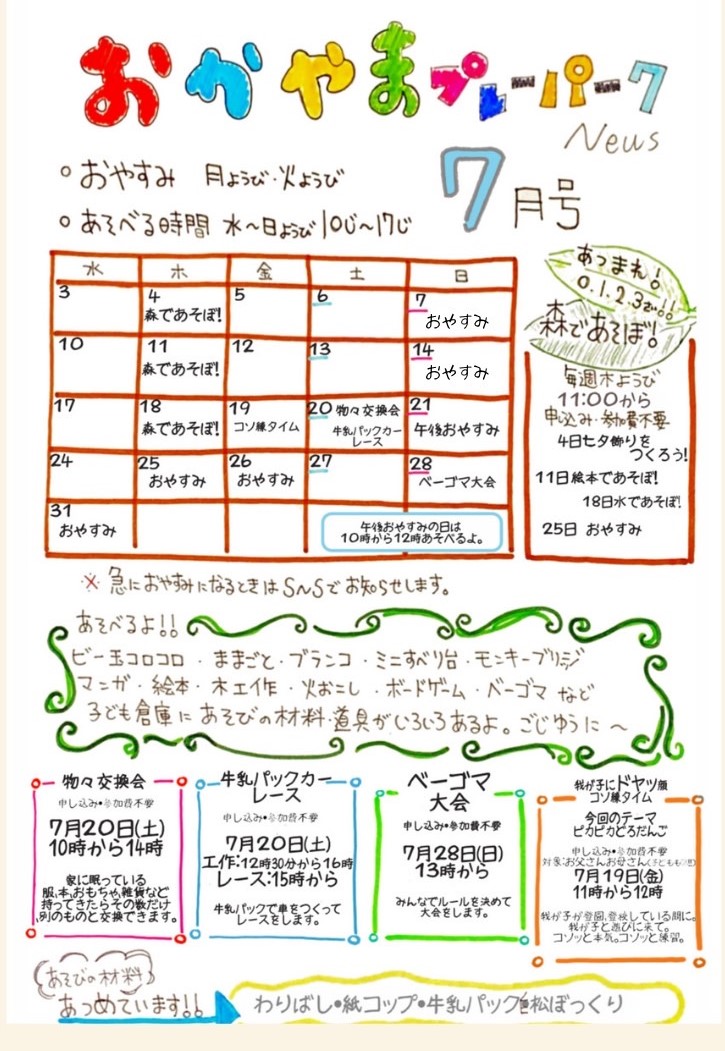 おかやまプレーパーク
News
7月号
○ おやすみ 月ようび・火ようび
○ あそべる時間 水～日ようび10じ～17じ
水 木 金 土 日
3 4 5 6 7
森であそぼ! おやすみ
10 11 12 13 14
森であそぼ! おやすみ
17 18 19 20 物々交換会 21
森であそぼ! コソ練タイム 牛乳パックカー 午後おやすみ
レース
24 25 26 27 28
おやすみ おやすみ ベーゴマ大会
31
おやすみ
午後おやすみの日は
10時から12時あそべるよ。
あつまれ!
0.1.2.3さい!!
森であそぼ!
毎週木ようび
11:00から
申込み・参加費不要
4日七夕飾りを
つくろう!
11日絵本であそぼ!
18日水であそぼ!
25日 おやすみ
※ 急におやすみになるときはSNSでお知らせします。
あそべるよ!!
ビー玉コロコロ・ままごと・ブランコ・ミニすべり台・モンキーブリッジ
マンガ・絵本・木工作・火おこし・ボードゲーム・ベーゴマ など
子ども倉庫に あそびの材料・道具がいろいろあるよ。ごじゆうに～
物々交換会
申し込み•参加費不要
7月20日(土)
10時から14時
家に眠っている
服,本,おもちゃ,雑貨など
持ってきたらその数だけ
別のものと交換できます。
牛乳パックカー
レース
申し込み•参加費不要
7月20日(土)
工作:12時30分から16時
レース:15時から
牛乳パックで車をつくって
レースをします。
ベーゴマ
大会
申し込み•参加費不要
7月28日(日)
13時から
みんなでルールを決めて
大会をします。
我が子にドヤッ顔
コソ練タイム
今回のテーマ
ピカピカどろだんご
申し込み•参加費不要
対象:お父さんお母さん
7月19日(金)
11時から12時
我が子が登園,登校している間に。
我が子と遊びに来て。
コソッと本気。コソッと練習。
あそびの材料
あつめています!!
わりばし•紙コップ•牛乳パック•松ぼっくり